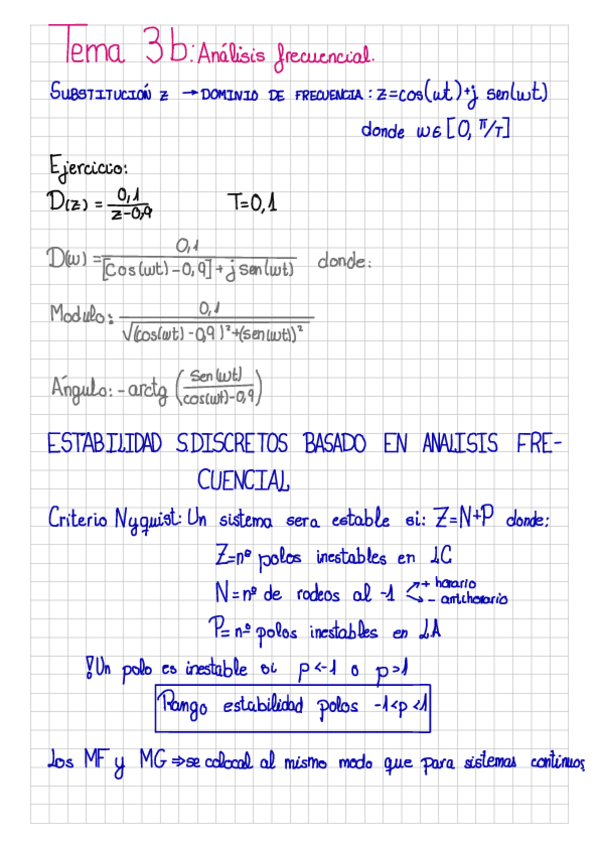 Tema 3b: Análisis frecuencial.
SUBSTITUCIÓN z → DOMINIO DE FRECUENCIA: z=cos(wt)+j sen(wt)
donde w∈[0, π/T]
Ejercicio:
D(z) = 0,1 / z-0,9 T=0,1
D(w) = 0,1 / [cos(wt)-0,9]+j sen(wt) donde:
Modulo: 0,1 / √(cos(wt)-0,9)²+(sen(wt))²
Ángulo: -arctg (sen(wt) / cos(wt)-0,9)
ESTABILIDAD S.DISCRETOS BASADO EN ANALISIS FRE-
CUENCIAL
Criterio Nyquist: Un sistema sera estable si: Z=N+P donde:
Z=nº polos inestables en LC
N=nº de rodeos al -1 + horario
- antihorario
P=nº polos inestables en LA
!Un polo es inestable si p<-1 o p>1
Rango estabilidad polos -1<p<1
Los MF y MG ⇒ se calocal al mismo modo que para sistemas continuos